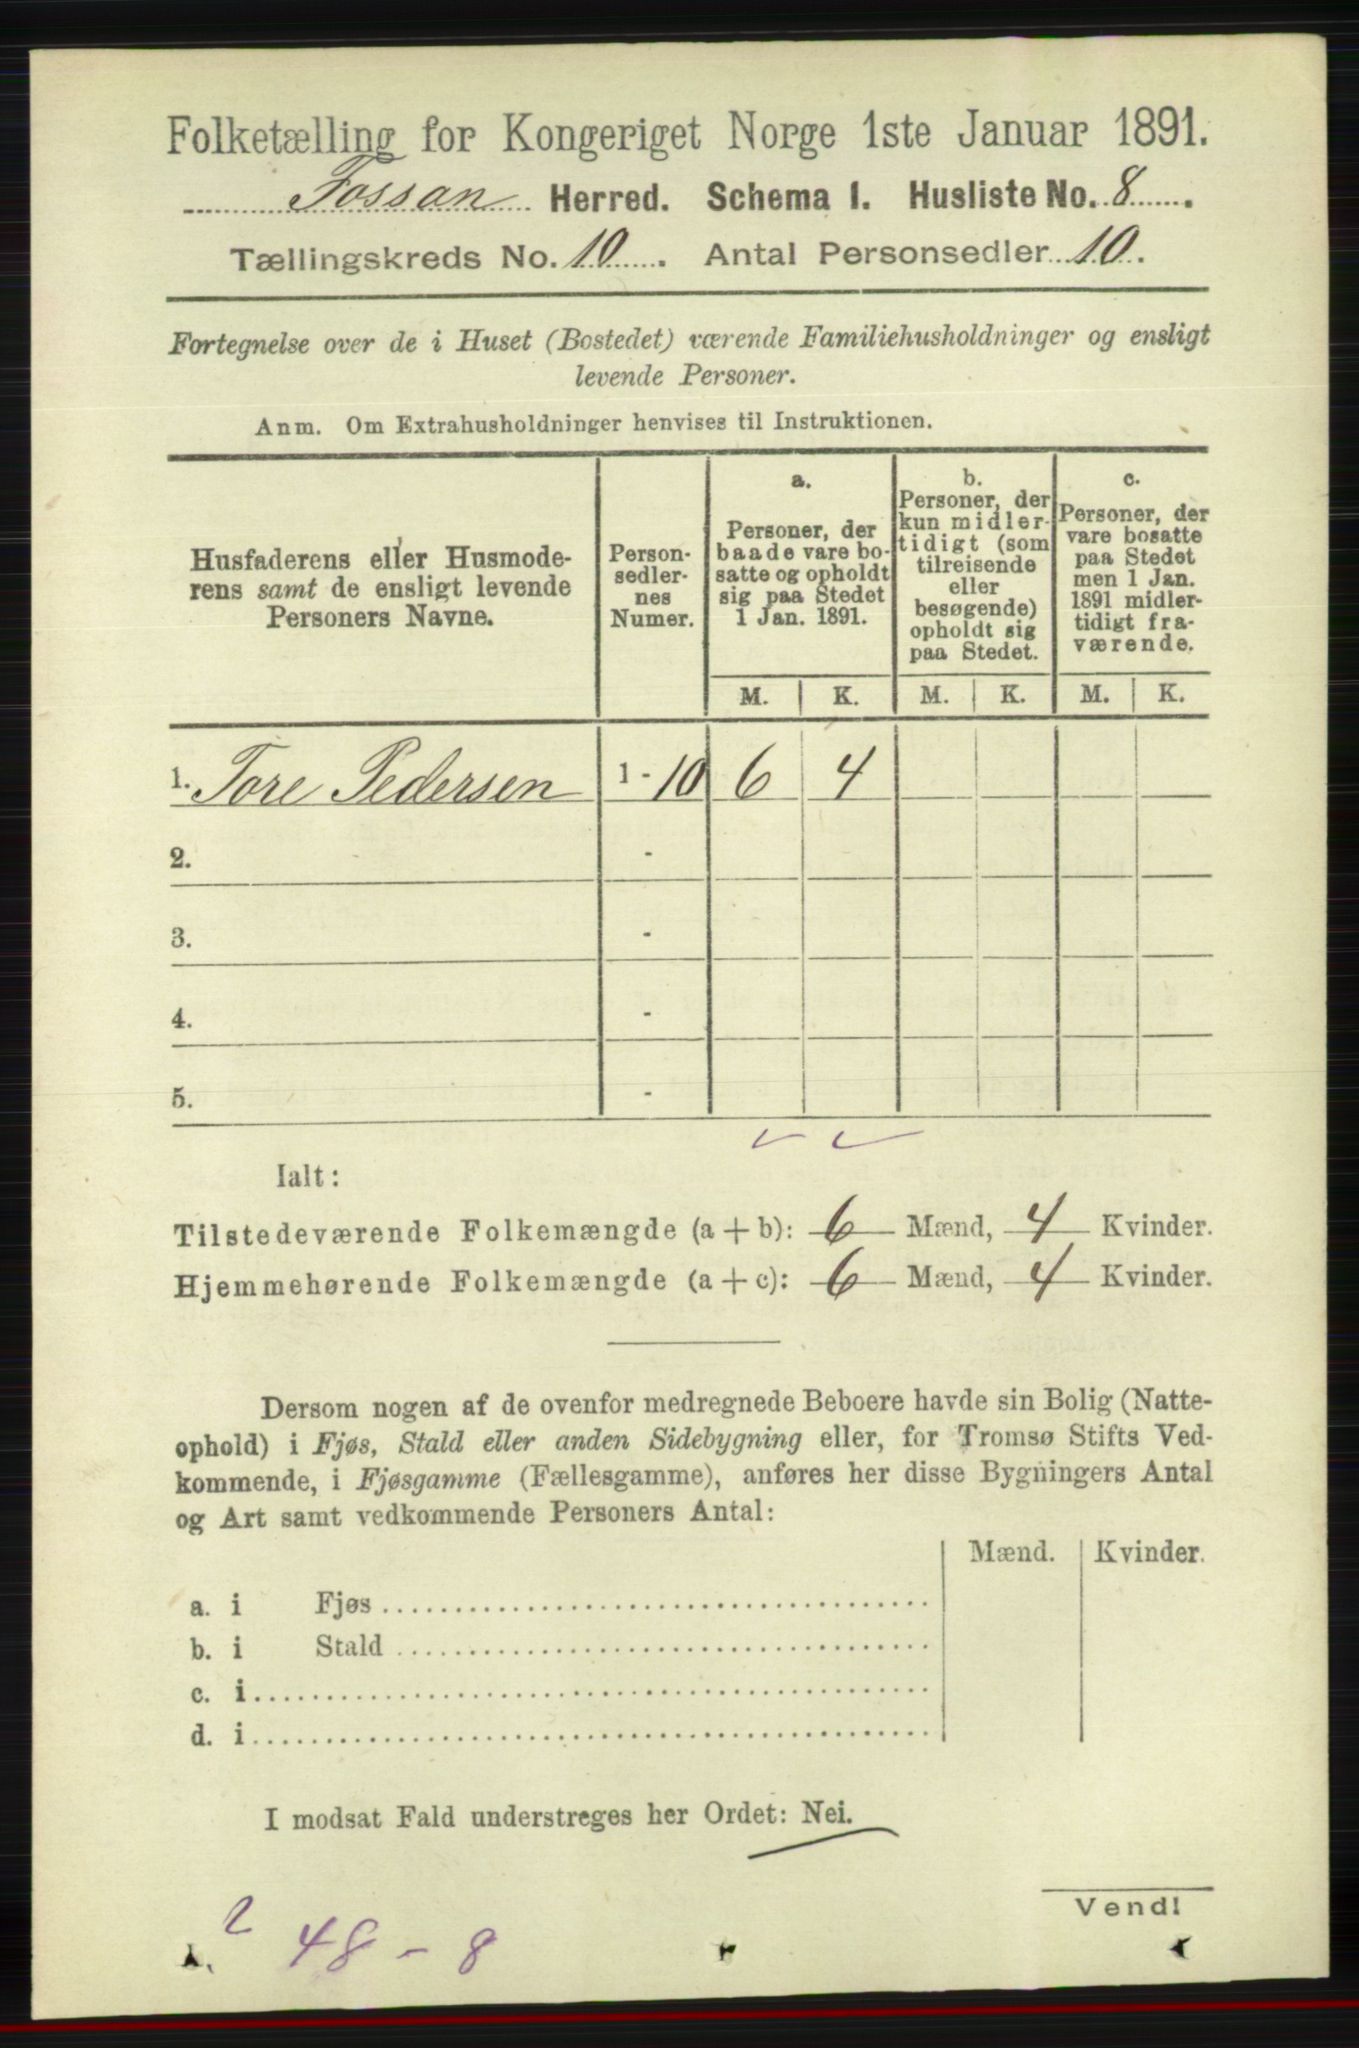 Folketælling for Kongeriget Norge 1ste Januar 1891.
Fossan Herred. Schema I. Husliste No. 8.
Tællingskreds No. 10. Antal Personsedler 10.
Fortegnelse over de i Huset (Bostedet) værende Familiehusholdninger og ensligt
levende Personer.
Anm. Om Extrahusholdninger henvises til Instruktionen.
Husfaderens eller Husmode-
rens samt de ensligt levende
Personers Navne.
Person-
sedler-
nes
Numer.
a.
Personer, der
baade vare bo-
satte og opholdt
sig paa Stedet
1 Jan. 1891.
b.
Personer, der
kun midler-
tidigt (som
tilreisende
eller
besøgende)
opholdt sig
paa Stedet.
c.
Personer, der
vare bosatte
paa Stedet
men 1 Jan.
1891 midler-
tidigt fra-
værende.
M. K. M. K. M. K.
1. Tore Pedersen 1 - 10 6 4
2. -
3. -
4. -
5. -
Ialt:
Tilstedeværende Folkemængde (a + b): 6 Mænd, 4 Kvinder.
Hjemmehørende Folkemængde (a + c): 6 Mænd, 4 Kvinder.
Dersom nogen af de ovenfor medregnede Beboere havde sin Bolig (Natte-
ophold) i Fjøs, Stald eller anden Sidebygning eller, for Tromsø Stifts Ved-
kommende, i Fjøsgamme (Fællesgamme), anføres her disse Bygningers Antal
og Art samt vedkommende Personers Antal:
Mænd. Kvinder.
a. i Fjøs
b. i Stald
c. i
d. i
I modsat Fald understreges her Ordet: Nei.
Vend!
2
48 - 8